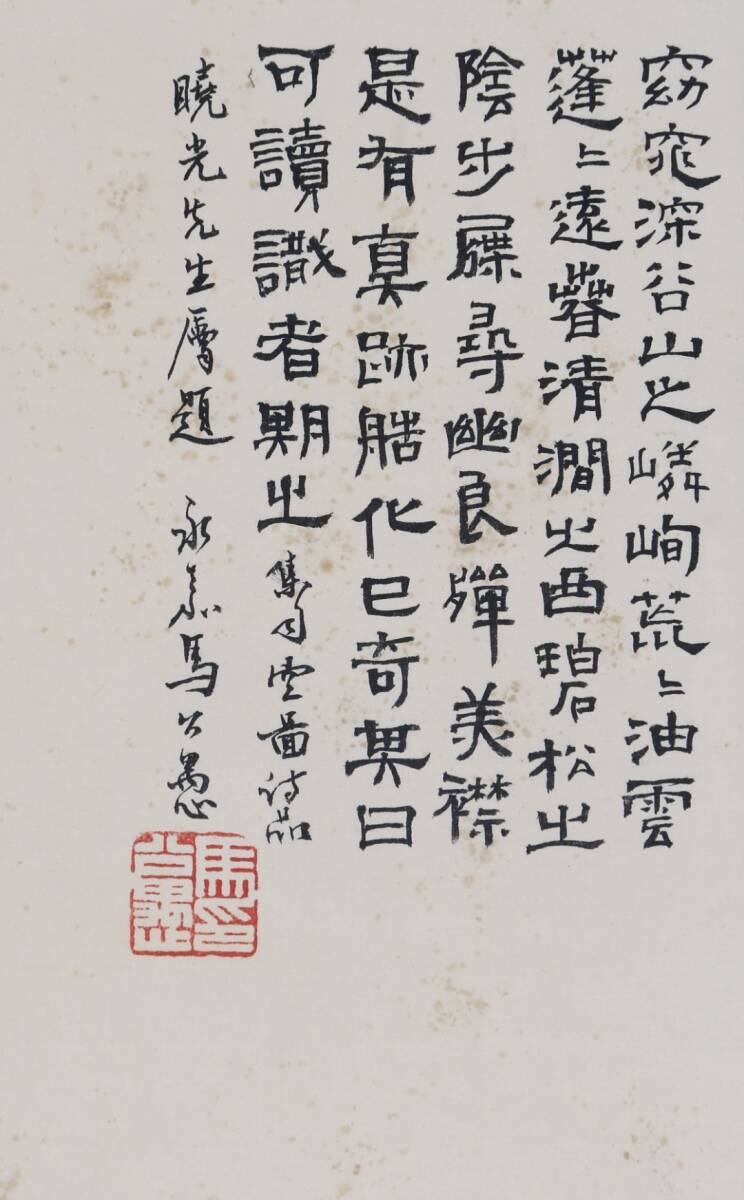 窈窕深谷山之嶙峋荒〻油雲
蓬〻遠萅清澗之曲碧松之
陰步屧尋幽良殫美襟
是有真跡艁化已奇其曰
可讀識者期之 集司空圖詩品
曉光先生屬題 永嘉馬公愚
馬印公愚